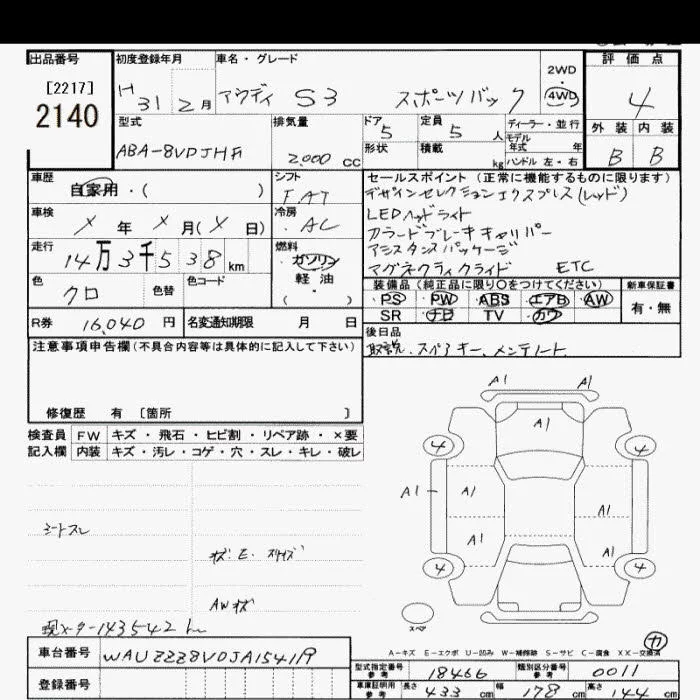 出品番号 初度登録年月 車名・グレード 2WD ・ 4WD 評価点
[2217]
2140
H 31 2月 アウディ S3 スポーツバック 4
型式 排気量 ドア 定員 ディーラー・並行 外装 内装
5 5人 モデル年式 年
ABA-8VDJHF 2,000 CC 形状 積載 kg ハンドル 左・右 B B
車歴 自家用・( ) シフト F.AT
セールスポイント (正常に機能するものに限ります)
デザインセレクションエクスプレス(レッド)
車検 X年 X月(X日) 冷房 AC
LEDヘッドライト
カラードブレーキキャリパー
走行 14万3千538km 燃料 ガソリン 軽油 ・( )
アシスタンスパッケージ
マグネティックライド ETC
色 クロ 色替 色コード
装備品(純正品に限り○をつけてください) 新車保証書
・PS ・PW ・ABS ・エアB ・AW 有・無
SR ・ナビ TV ・カワ
R券 16,040円 名変通知期限 月 日
後日品
取説、スペアキー、メンテノート
注意事項申告欄(不具合内容等は具体的に記入して下さい)
修復歴 有 [箇所 ]
検査員 FW キズ・飛石・ヒビ割・リペア跡・×要
記入欄 内装 キズ・汚レ・コゲ・穴・スレ・キレ・破レ
A1 A1
A1
4 4
A1 A1 A1
A1
4 4
シートスレ
AWキズ
スペア
現メーター143542km
A=キズ E=エクボ U=凹み W=補修跡 S=サビ C=腐食 XX=交換済
カ
車台番号 WAUZZZ8VDJA154119
型式指定番号 参考 18466 類別区分番号 参考 0011
登録番号
車庫証明用 参考 長さ 433cm 幅 178cm 高さ 144cm